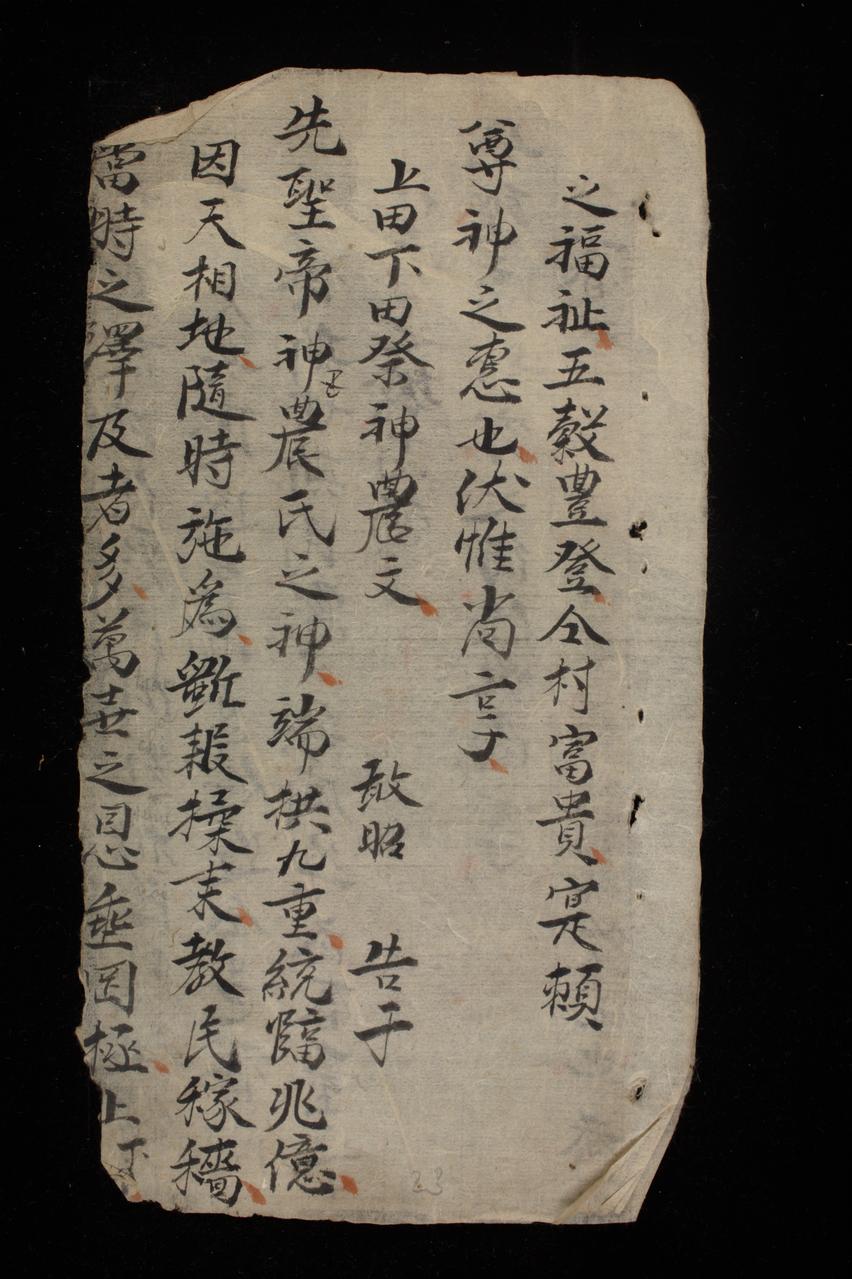 之福祉五穀豊登仝村富貴寔頼
尊神之德也伏惟尚享
上田下田祭神農文 敢昭 告于
先聖帝神農氏之神端拱九重統臨兆億
因天相地隨時施爲斵耜揉耒教民稼穡
當時之澤及者多萬世之恩垂罔極上
23